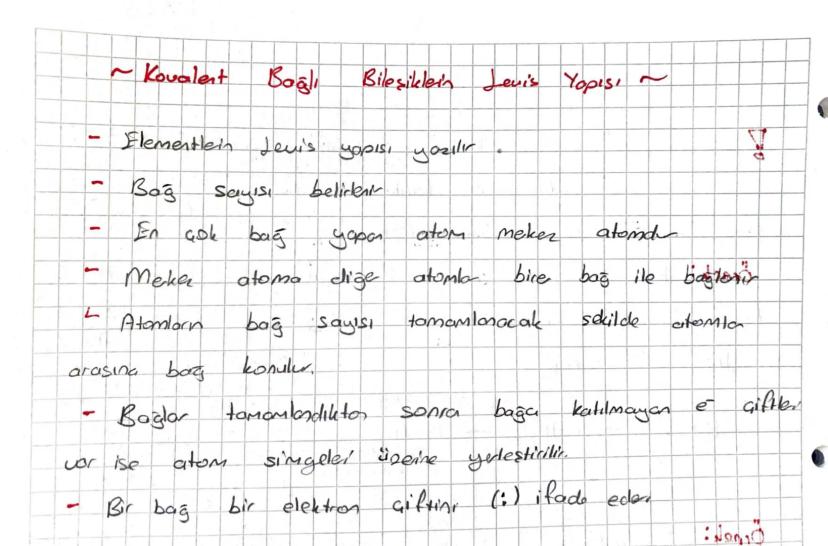 ~ Kovalent Bağlı Bileşiklerin Lewis Yapısı ~
- Elementlerin Lewis yapısı yazılır.
- Bağ sayısı belirlenir
- En çok bağ yapan atom merkez atomdur
- Merkez atoma diğer atomlar birer bağ ile bağlanır
- Atomların bağ sayısı tamamlanacak şekilde atomlar
arasına bağ konulur.
- Bağlar tamamlandıktan sonra bağa katılmayan e⁻ çiftleri
var ise atom simgeleri üzerine yerleştirilir.
- Bir bağ bir elektron çiftini (:) ifade eder